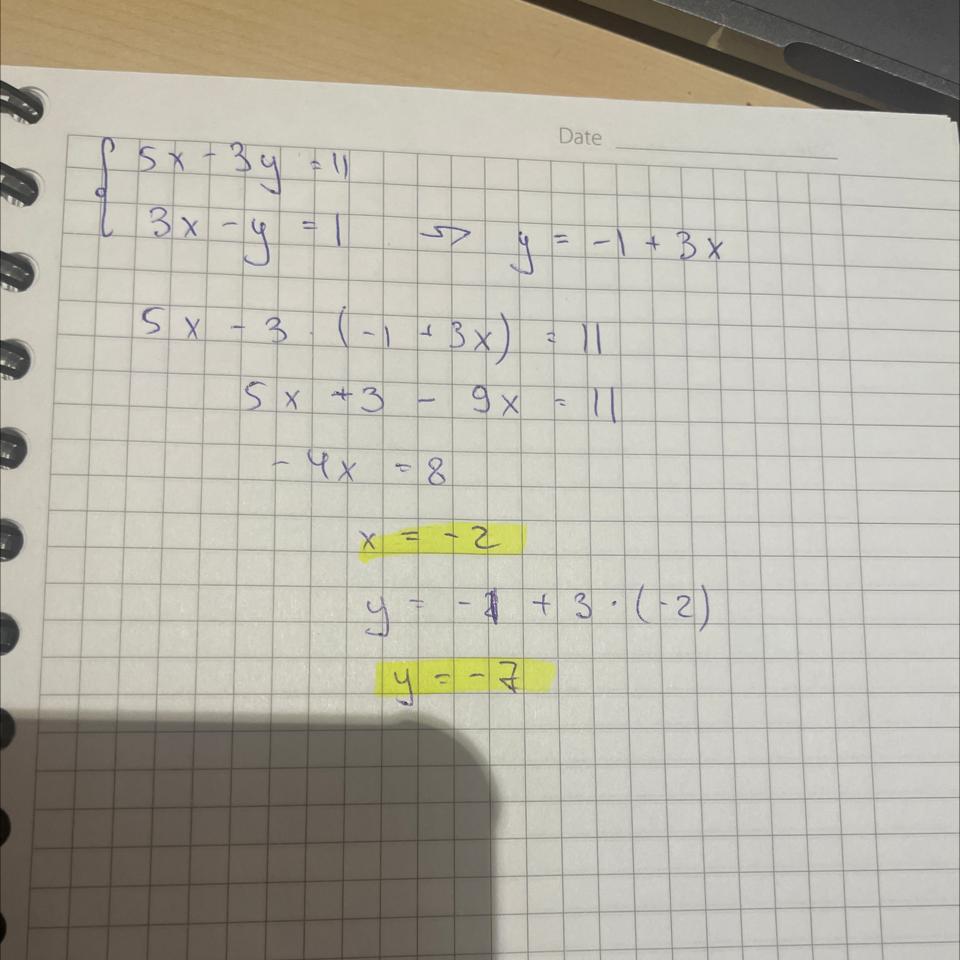 Date
5x - 3y = 11
3x - y = 1 => y = -1 + 3x
5x - 3 · (-1 + 3x) = 11
5x + 3 - 9x = 11
- 4x = 8
x = - 2
y = - 1 + 3 · (-2)
y = - 7